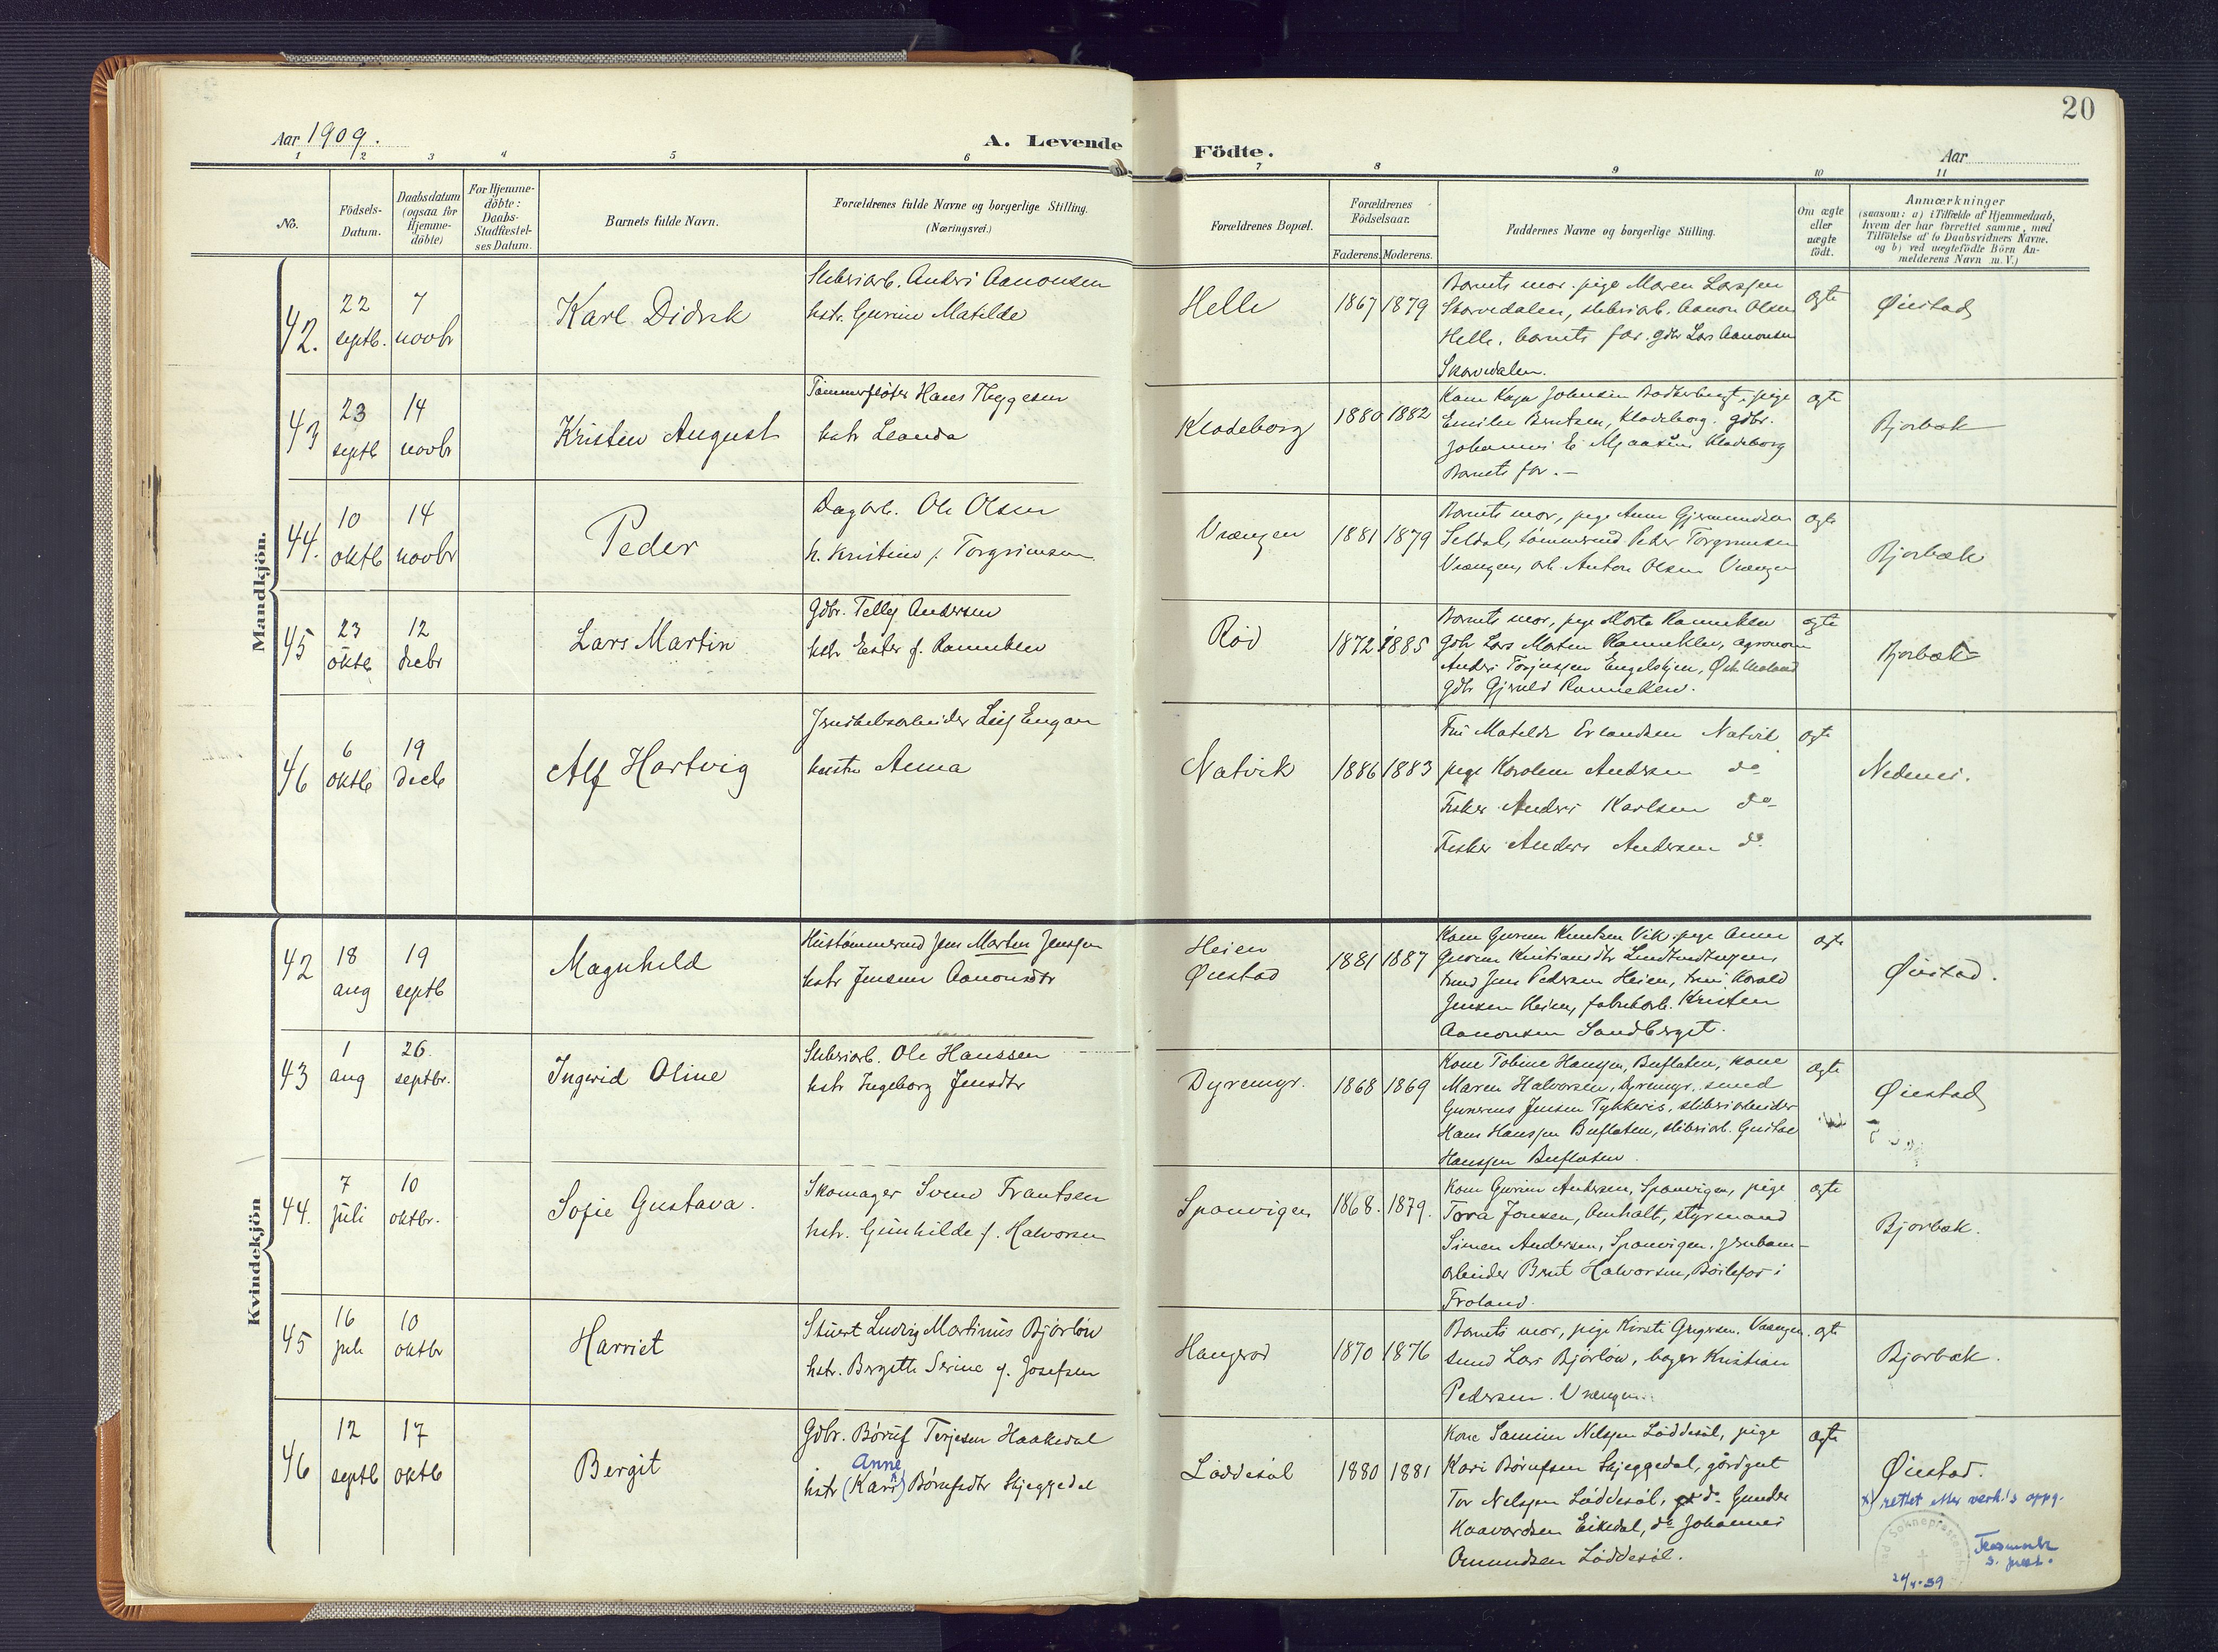 20
Aar 1909.
A. Levende Födte.
Aar
1 2 3 4 5 6 7 8 9 10 11
No.
Födsels-
Datum.
Daabsdatum
(ogsaa for
Hjemme-
döbte)
For Hjemme-
döbte:
Daabs-
Stadfæstel-
ses Datum.
Barnets fulde Navn.
Forældrenes fulde Navne og borgerlige Stilling.
(Næringsvei.)
Forældrenes Bopæl.
Forældrenes
Födselsaar.
Faderens. Moderens.
Faddernes Navne og borgerlige Stilling.
Om ægte
eller
uægte
födt.
Anmærkninger
(saasom: a) i Tilfælde af Hjemmedaab,
hvem der har forrettet samme, med
Tilföielse af to Daabsvidners Navne,
og b) ved uægtefödte Börn An-
melderens Navn m. V.)
Mandkjön.
42.
22
septb.
7
novbr
Karl Didrik
Sliberiarb. Anders Aanonsen
hstr. Gurine Matilde
Helle
1867 1879
Barnets mor. pige Maren Larssen
Skarvedalen, sliberiarb. Aanon Olsen
Helle, barnets far. gdbr Lars Aanonsen
Skarvedalen.
ægte
Øiestad
43
23
septb
14
novbr
Kristen August
Tømmerfløter Hans Thygesen
hstr Leonda
Kladeborg
1880 1882
Emilie Berntsen, Kladeborg. gdbr.
Johannes E Mjaasund Kladeborg
Barnets far. —
ægte
Bjorbæk
44.
10
oktb
14
novbr
Peder
Dagarb. Ole Olsen
h. Kristine f. Torgrimsen
Vrængen
1881 1879
Barnets mor, pige Anne Gjermundsen
Seldal, tømmermd Peder Torgrimsen
Vrængen, arb. Anton Olsen Vrængen
ægte
Bjorbæk
45
23
oktb
12
decbr
Lars Martin
Gdbr. Tellef Andersen
hstr Ester f. Ranneklev
Rød
1872 1885
Barnets mor, pige Marte Ranneklev
gdbr Lars Morten Ranneklev, agronom
Anders Torjussen Engelskjen, Østr Moland
gdbr Gjeruld Ranneklev.
ægte
Bjorbæk
46
6
oktb
19
decb
Alf Hartvig
Jernstøbsarbeider Leif Engan
hustru Anna
Natvik
1886 1883
Fru Matilde Erlandsen Natvik
pige Karoline Andersen do
Fisker Anders Karlsen do
Fisker Anders Andersen do
ægte
Nedenes.
Kvindekjön
42
18
aug
19
septb
Magnhild
Hustømmermd Jens Martin Jenssen
hstr Jensine Aanonsdtr
Heien
Øiestad
1881 1887
Kone Gurine Knutsen Vik. pige Anne
Gurine Kristiansdtr
tmd Jens Pedersen Heien, tmd Harald
Jensen Heien, fabrikarb. Kristen
Aanonsen Sandberget.
ægte
Øiestad.
43
1
aug
26.
septbr.
Ingerid Oline
Sliberiarb. Ole Hanssen
hstr Ingeborg Jensdtr
Dyremyr.
1868 1869
Kone Tobine Hanssen, Buflaten, kone
Maren Halvorsen, Dyremyr. smed
Gunerius Jensen Tykkeris, sliberiarbeider
Hans Hanssen Buflaten, sliberiarb. Gustav
Hanssen Buflaten.
ægte
Øiestad
44.
7
juli
10
oktbr.
Sofie Gustava.
Skomager Svend Frantsen
hstr. Gunhilde f. Halvorsen
Spanvigen
1868. 1879.
Kone Gurine Andersen, Spanvigen, pige
Tora Jensen, Omholt, styrmand
Simen Andersen, Spanvigen, jernban-
arbeider Bent Halvorsen, Bøilefos i
Froland.
ægte
Bjorbæk.
45
16
juli
10
oktbr
Harriet
Stuert Ludvig Martinius Bjorløw
hstr. Bergitte Serine f. Josefsen
Haugerød
1870 1876
Barnets mor, pige Kirsti Gregersen. Vrængen.
smed Lars Bjorløw, bager Kristian
Pedersen. Vrængen.
ægte
Bjorbæk.
46
12
septb
17
oktb
Bergit
Gdbr. Børuf Terjesen Haakedal
Anne
hstr (Kari x) Børufsdtr Skjeggedal
Løddesøl
1880 1881
Kone Samine Nelssen Løddesøl, pige
Kari Børufsen Skjeggedal, gårdgut
Tor Nelssen Løddesøl, do Gunder
Haavardsen Eikedal, do Johannes
Omundsen Løddesøl.
ægte
Øiestad.
x) rettet etter værk.'s oppg.
Soknepresten
s. prest.
24/4-39